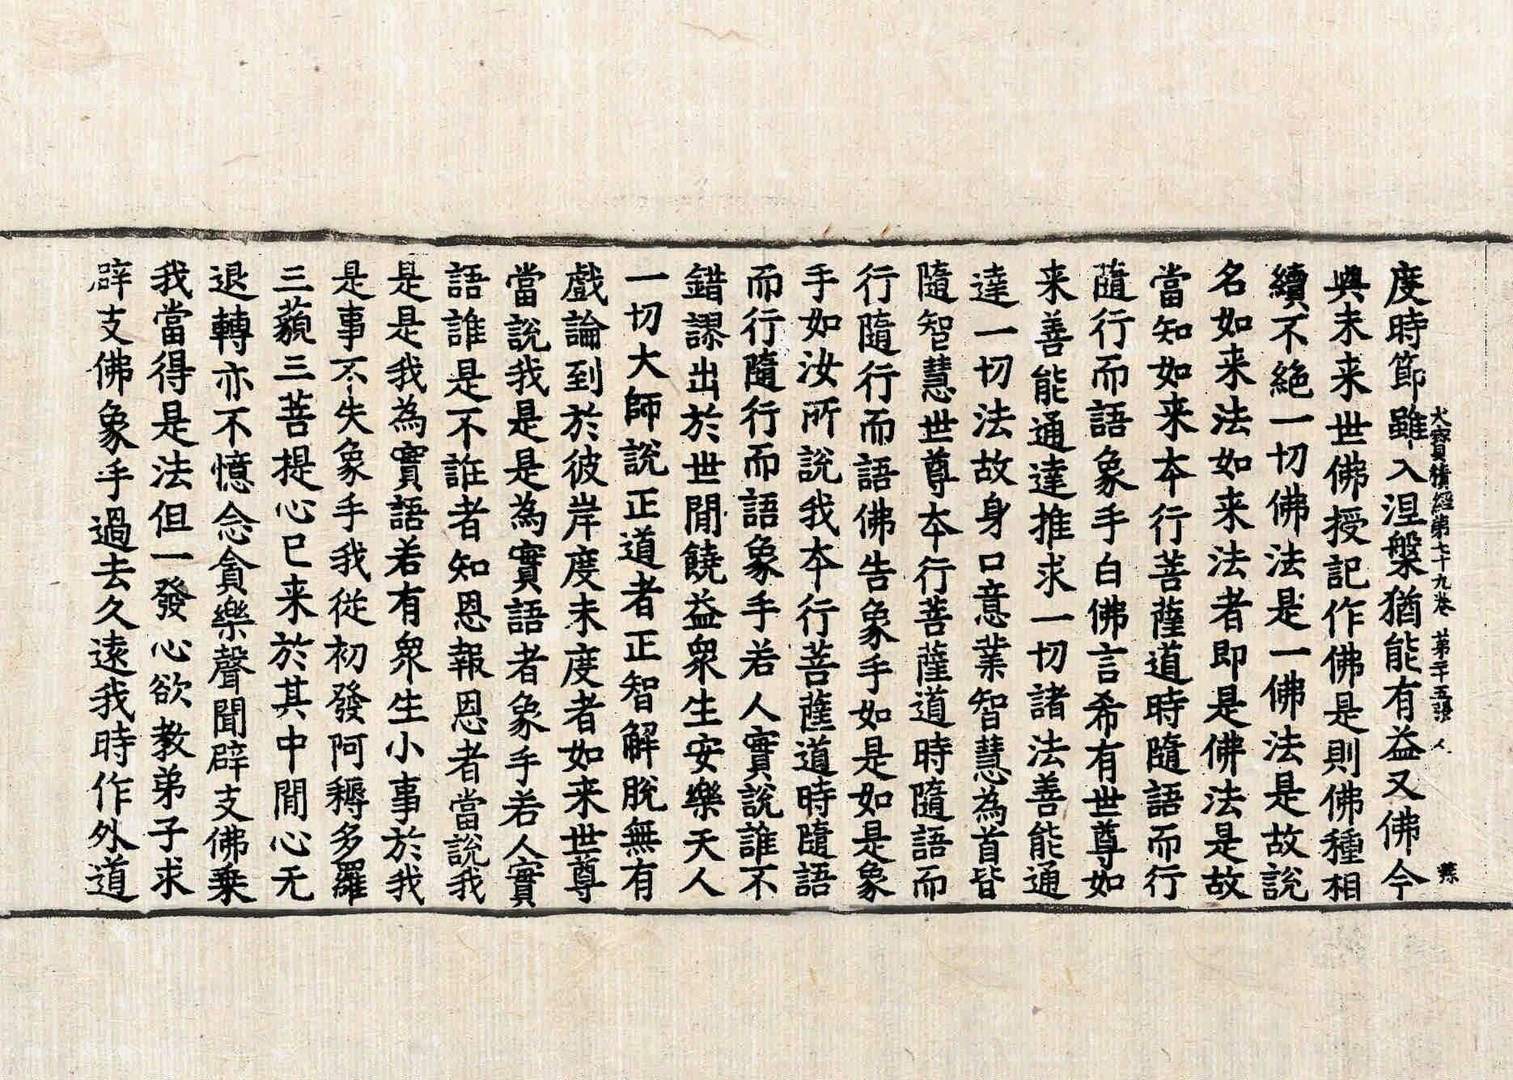 大寶積經第七十九卷 第二十五張 人
度時節雖入涅槃猶能有益又佛今
與未来世佛授記作佛是則佛種相
續不絶一切佛法是一佛法是故說
名如来法如来法者即是佛法是故
當知如来夲行菩薩道時隨語而行
隨行而語象手白佛言希有世尊如
来善能通達推求一切諸法善能通
達一切法故身口意業智慧為首皆
隨智慧世尊夲行菩薩道時隨語而
行隨行而語佛告象手如是如是象
手如汝所說我夲行菩薩道時隨語
而行隨行而語象手若人實說誰不
錯謬出於世間饒益衆生安樂天人
一切大師說正道者正智解脫無有
戲論到於彼岸度未度者如来世尊
當說我是是為實語者象手若人實
語誰是不誑者知恩報恩者當說我
是是我為實語若有衆生小事於我
是事不失象手我從初發阿耨多羅
三藐三菩提心已来於其中間心无
退轉亦不憶念貪樂聲聞辟支佛乗
我當得是法但一發心欲教弟子求
辟支佛象手過去久遠我時作外道